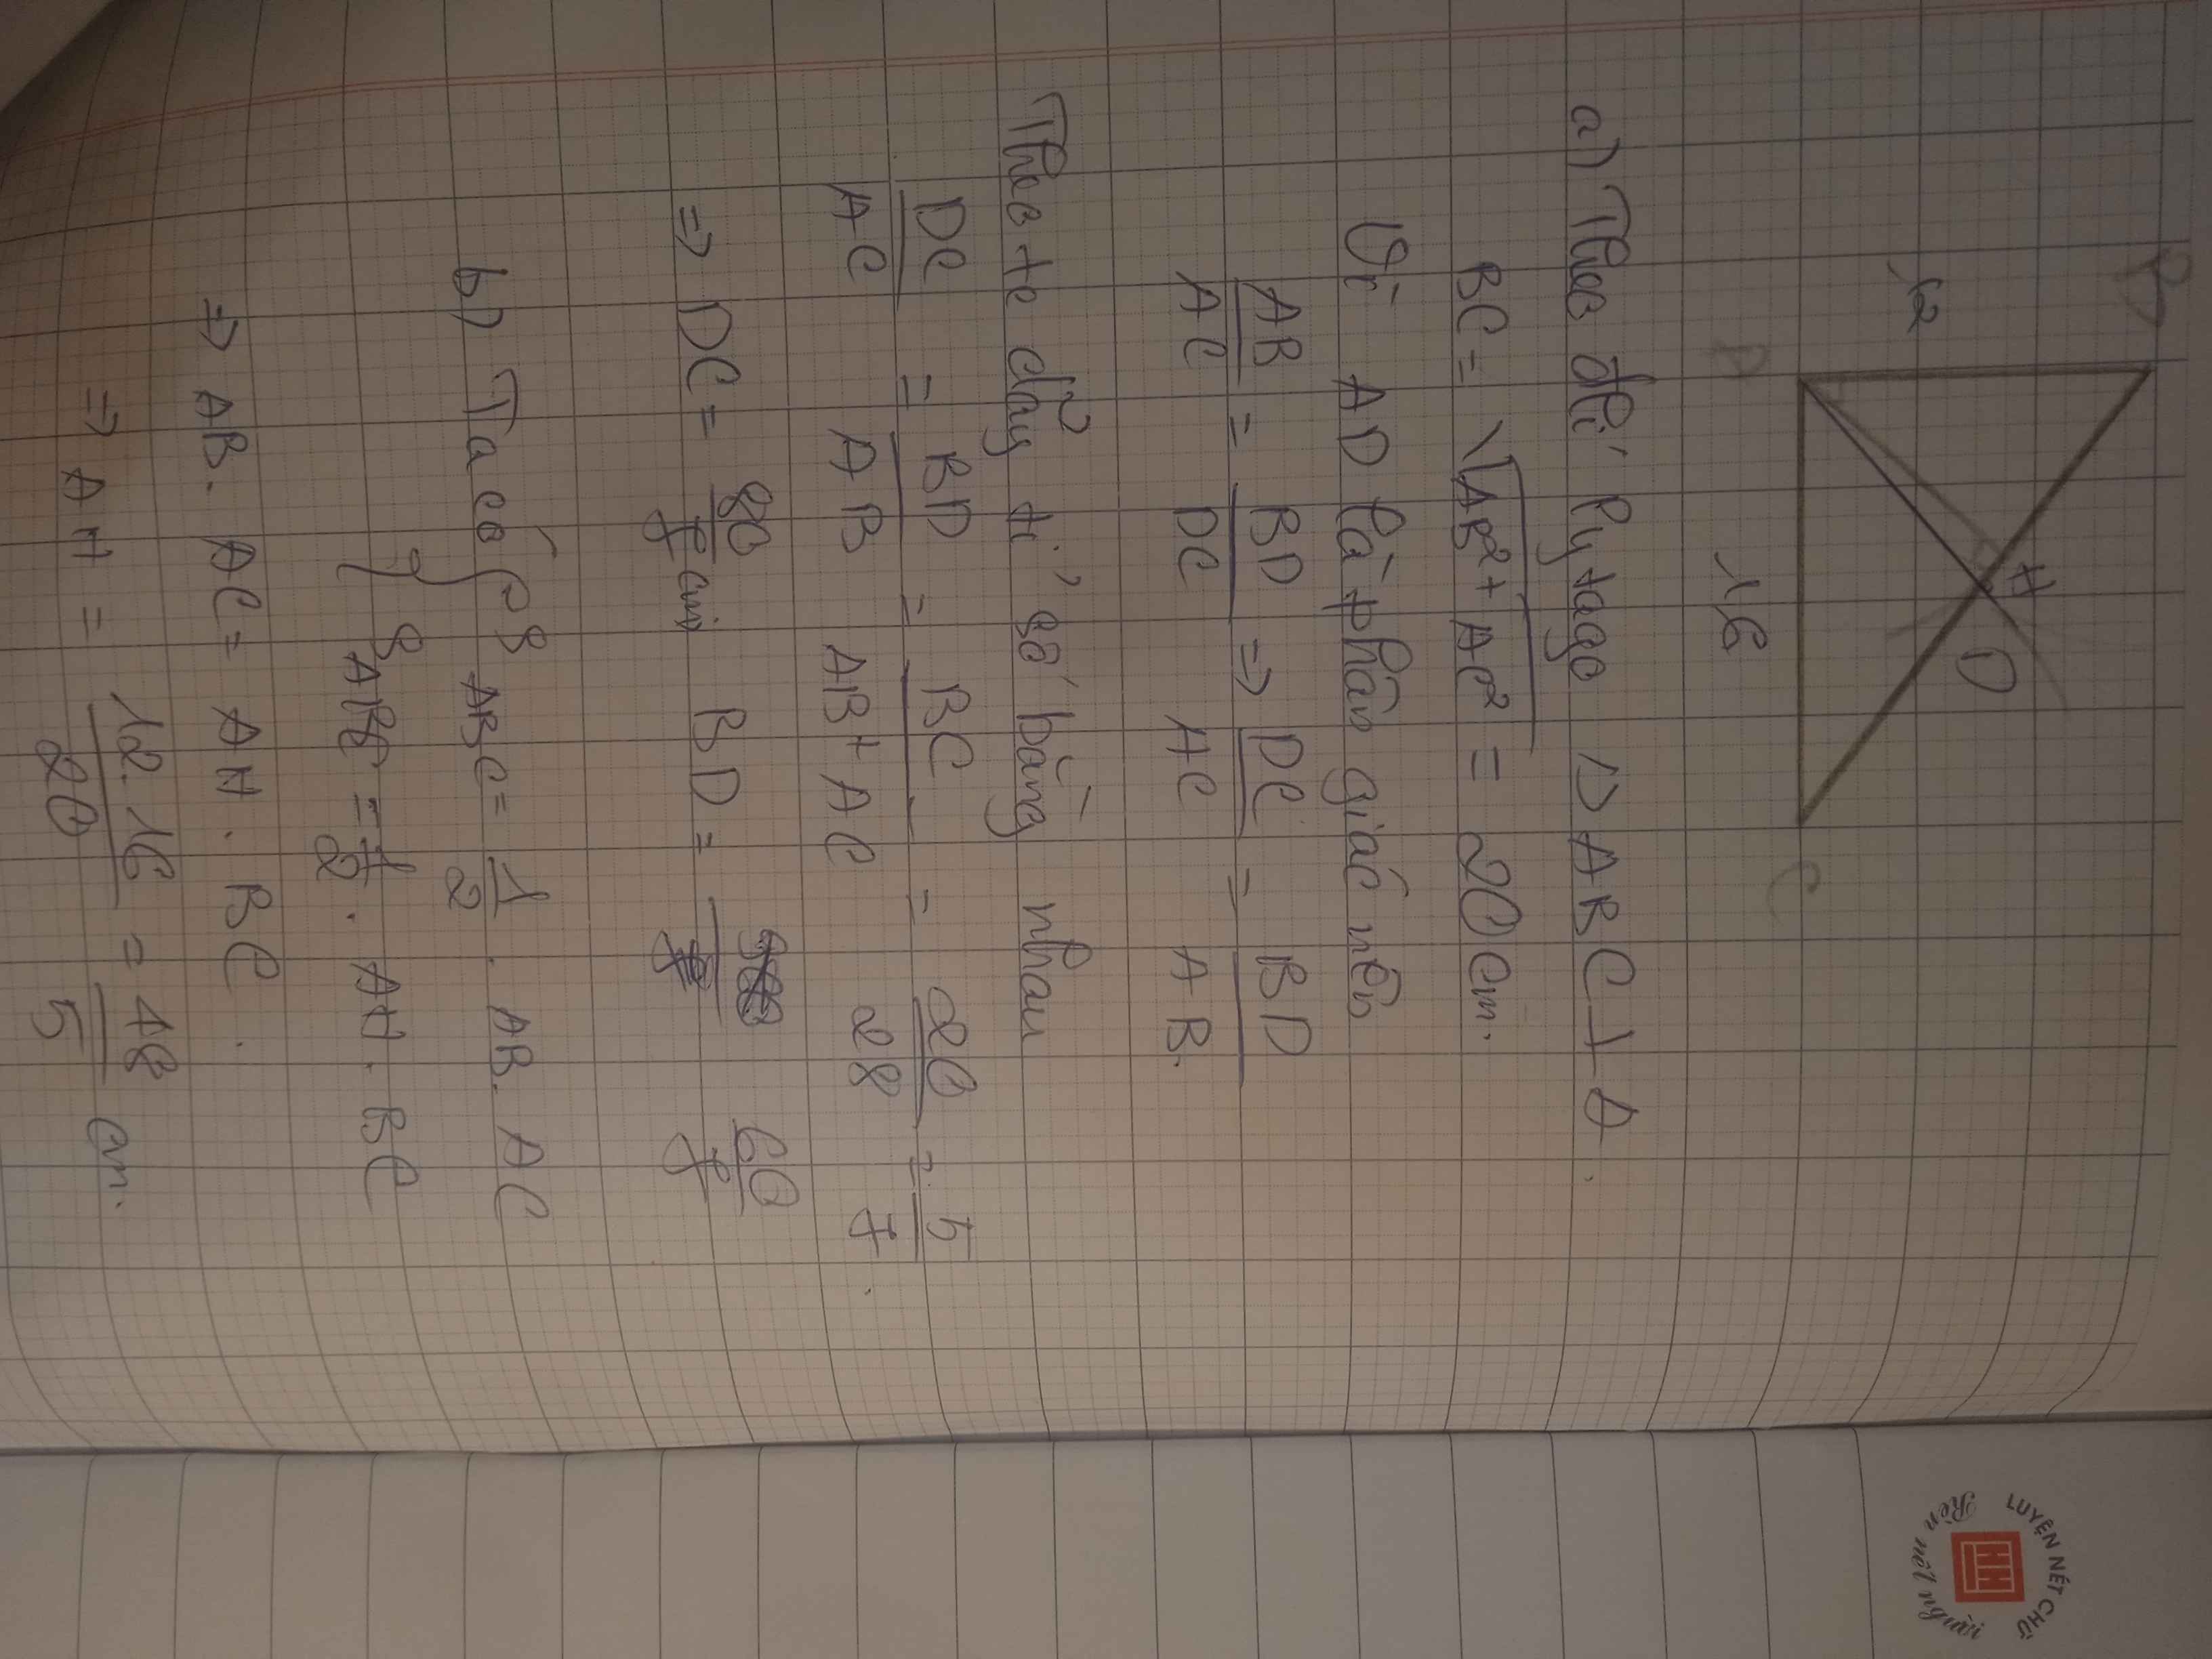 B
12
H
D
A
16
C
a) Theo đlí Pytago △ABC ⊥ A.
BC = √AB²+AC² = 20cm.
Vì AD là phân giác nên
AB/AC = BD/DC ⇒ DC/AC = BD/AB.
Theo tc dãy tỉ số bằng nhau
DC/AC = BD/AB = BC/AB+AC = 20/28 = 5/7.
⇒ DC = 80/7 cm; BD = 60/7
b) Ta có { S ABC = 1/2 . AB. AC
S ABC = 1/2 . AH . BC
⇒ AB. AC = AH . BC.
⇒ AH = 12.16/20 = 48/5 cm.
LUYỆN NÉT CHỮ
Rèn nết người